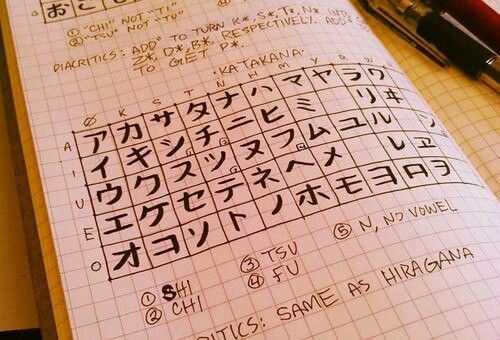 おこ
① "CHI" NOT "TI"
② "TSU" NOT "TU"
DIACRITICS: ADD " TO TURN K*, S*, T*, N* INTO
Z*, D*, B*, RESPECTIVELY. ADD °
TO GET P*.
·KATAKANA·
Ø K S T N H M Y R W
A ア カ サ タ ナ ハ マ ヤ ラ ワ
I イ キ シ① チ② ニ ヒ ミ リ ヰ
U ウ ク ス ツ③ ヌ フ④ ム ユ ル ン
E エ ケ セ テ ネ ヘ メ レ ヱ
O オ コ ソ ト ノ ホ モ ヨ ロ ヲ
① SHI ③ TSU ⑤ N, NO VOWEL
② CHI ④ FU
CRITICS: SAME AS HIRAGANA